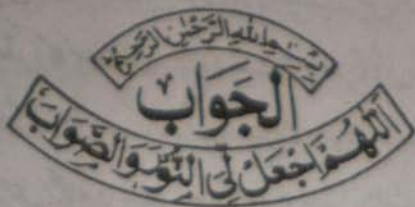 بِسْمِ اللهِ الرَّحْمٰنِ الرَّحِيْمِ
اَلْجَوَابْ
اَللّٰهُمَّ اجْعَلْ لِّیَ النُّوْرَ وَالصَّوَابْ